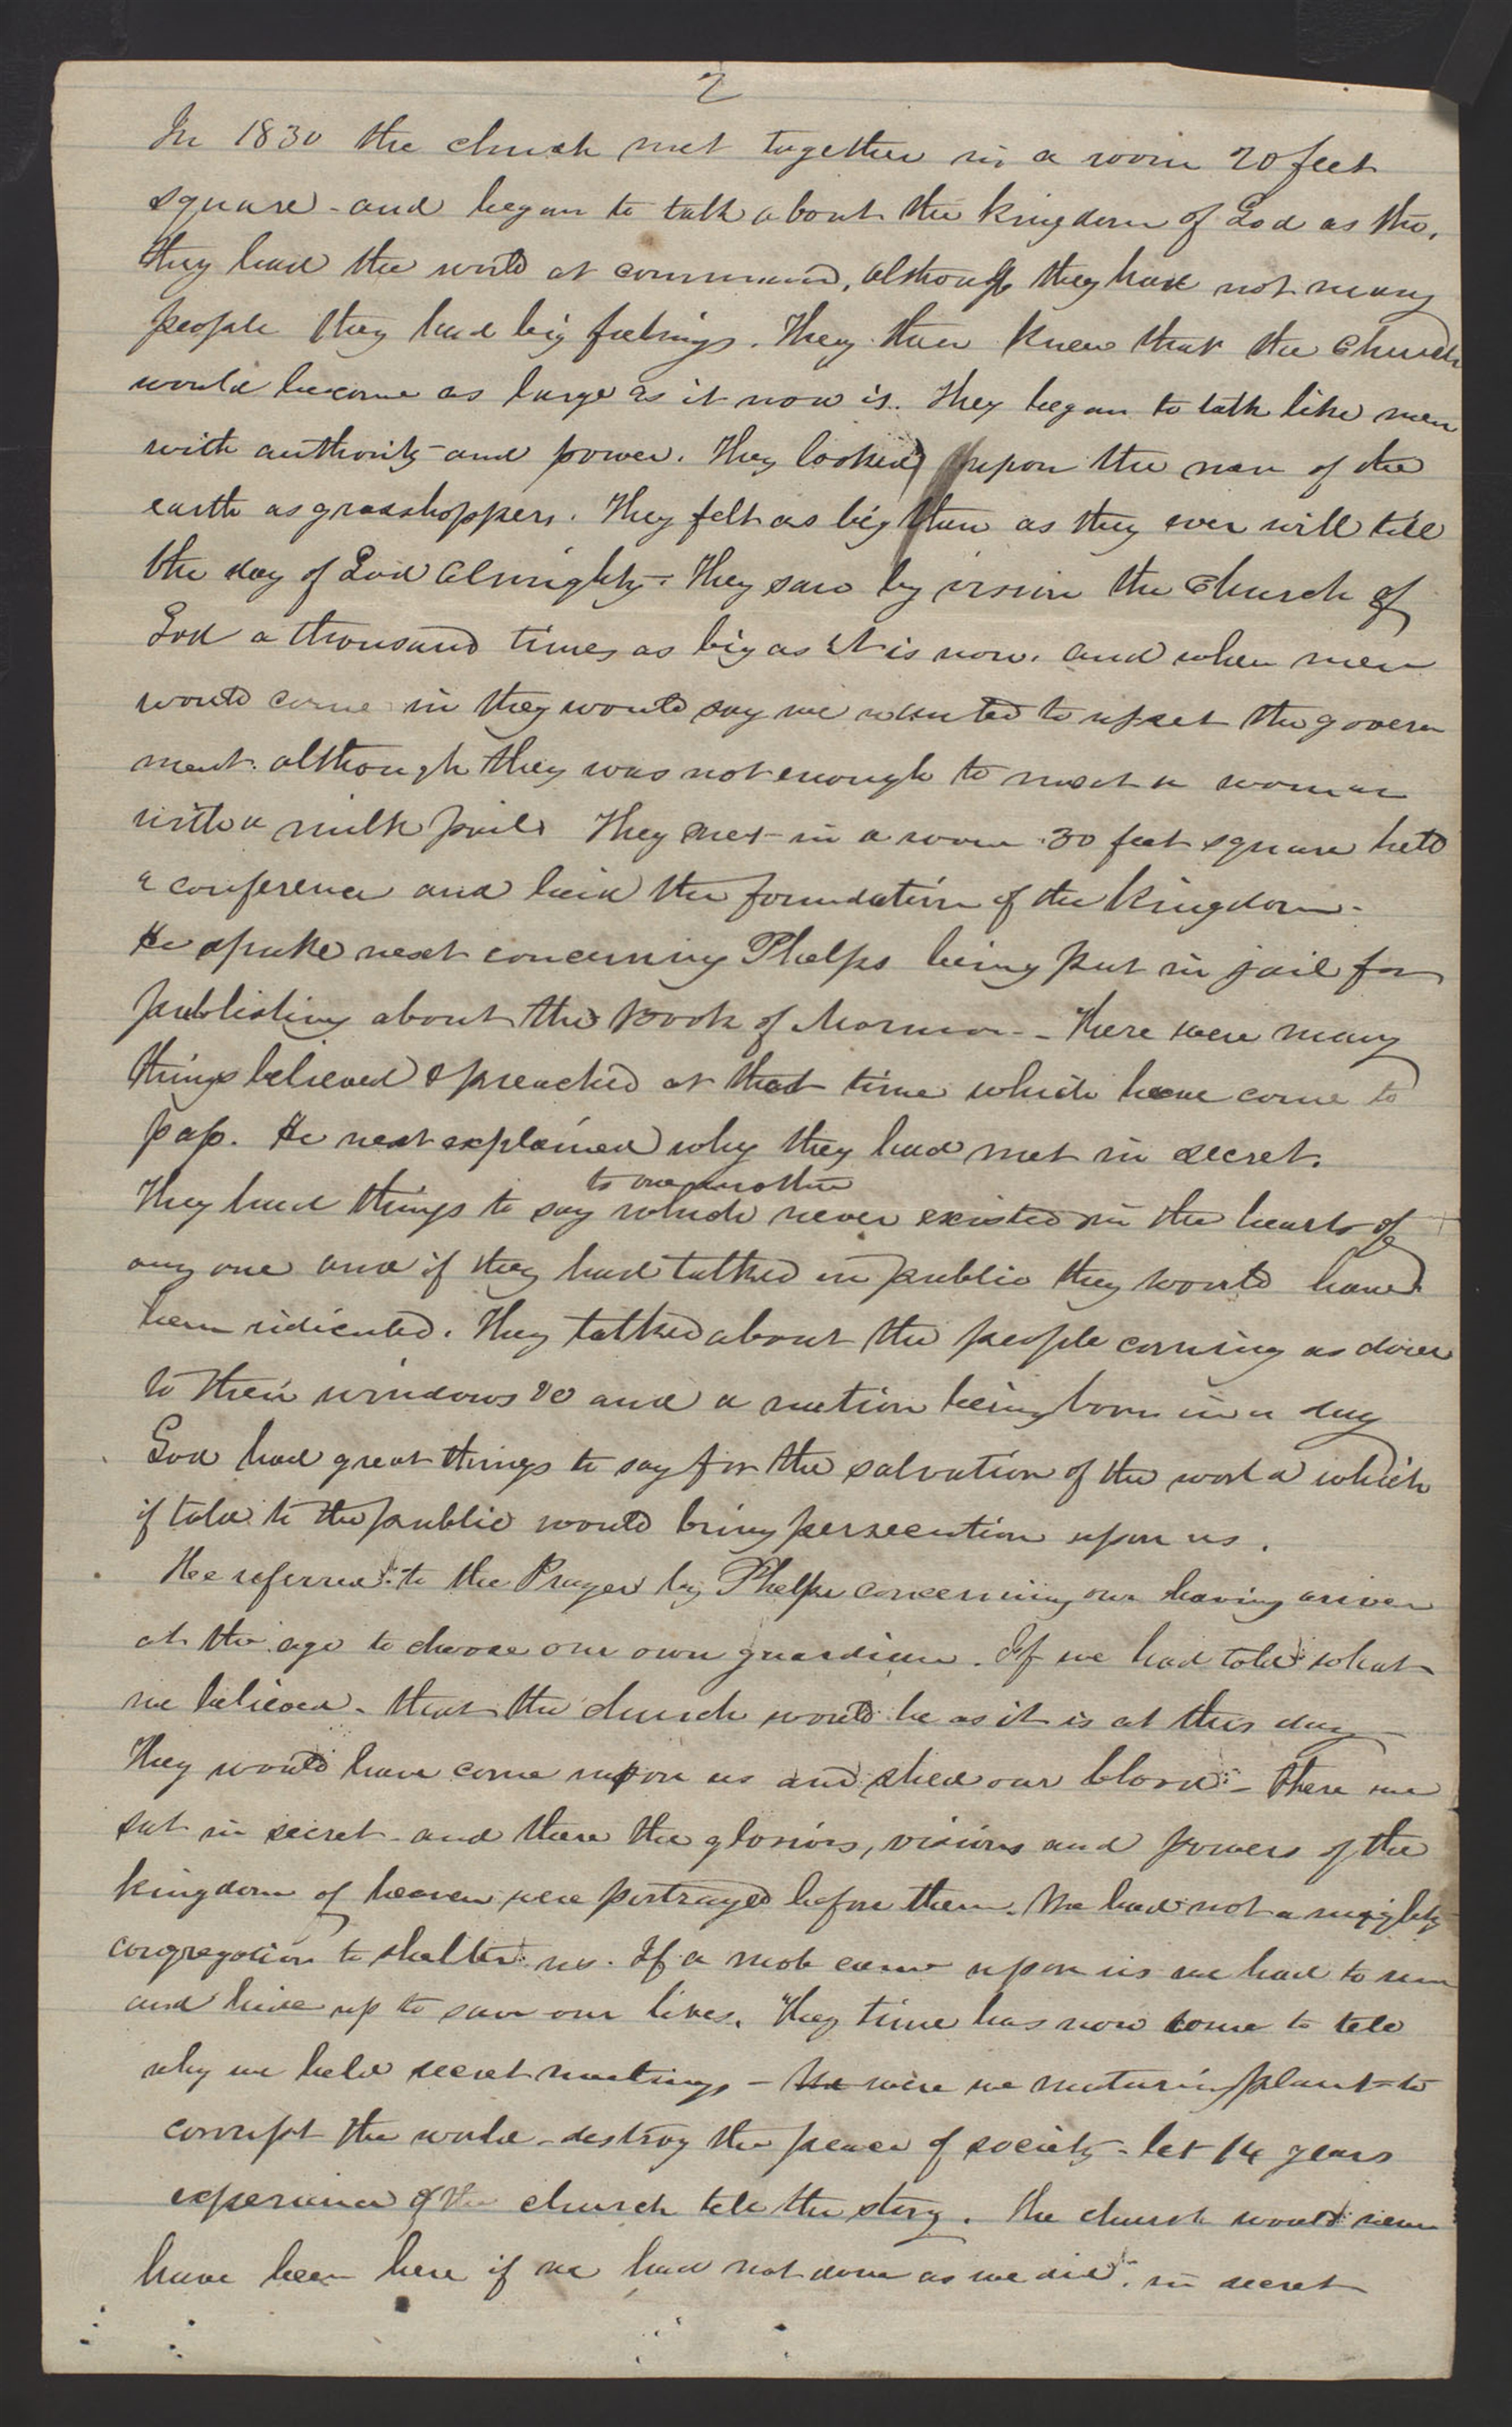 2
In 1830 the church met together in a room 20 feet
square - and began to talk about the kingdom of God as tho.
they had the world at command, although they had not many
people they had big feelings. They then knew that the Church
would become as large as it now is. They began to talk like men
with authority and power. They looked upon the men of the
earth as grasshoppers. They felt as big then as they ever will till
the day of God Almighty. They saw by vision the Church of
God a thousand times as big as it is now. and when men
would come in they would say we wanted to upset the govern
ment. although they was not enough to meet a woman
with a milk pail They met in a room 30 feet square held
a conference and laid the foundation of the kingdom -
He spoke next concerning Phelps being put in jail for
publishing about the Book of Mormon - There were many
things believed & preached at that time which have come to
pass. He next explained why they had met in secret.
to one another
They had things to say which never existed in the hearts of
any one and if they had talked in public they would have
been ridiculed. They talked about the people coming as doves
to their windows &c and a nation being born in a day
God had great things to say for the salvation of the world which
if told to the public would bring persecution upon us.
He referred to the Prayer by Phelps concerning our having arriven
at the age to choose our own guardian. If we had told what
we believed - that the church would be as it is at this day
They would have come upon us and shed our blood - There we
sat in secret - and there the glories, visions and powers of the
kingdom of heaven were portrayed before them. We had not a mighty
congregation to shelter us. If a mob came upon us we had to run
and hide up to save our lives. They time has now come to tell
why we held secret meetings - We were we maturing plans to
corrupt the world - destroy the peace of society - let 14 years
experience of the church tell the story. The church would never
have been here if we had not done as we did. in secret